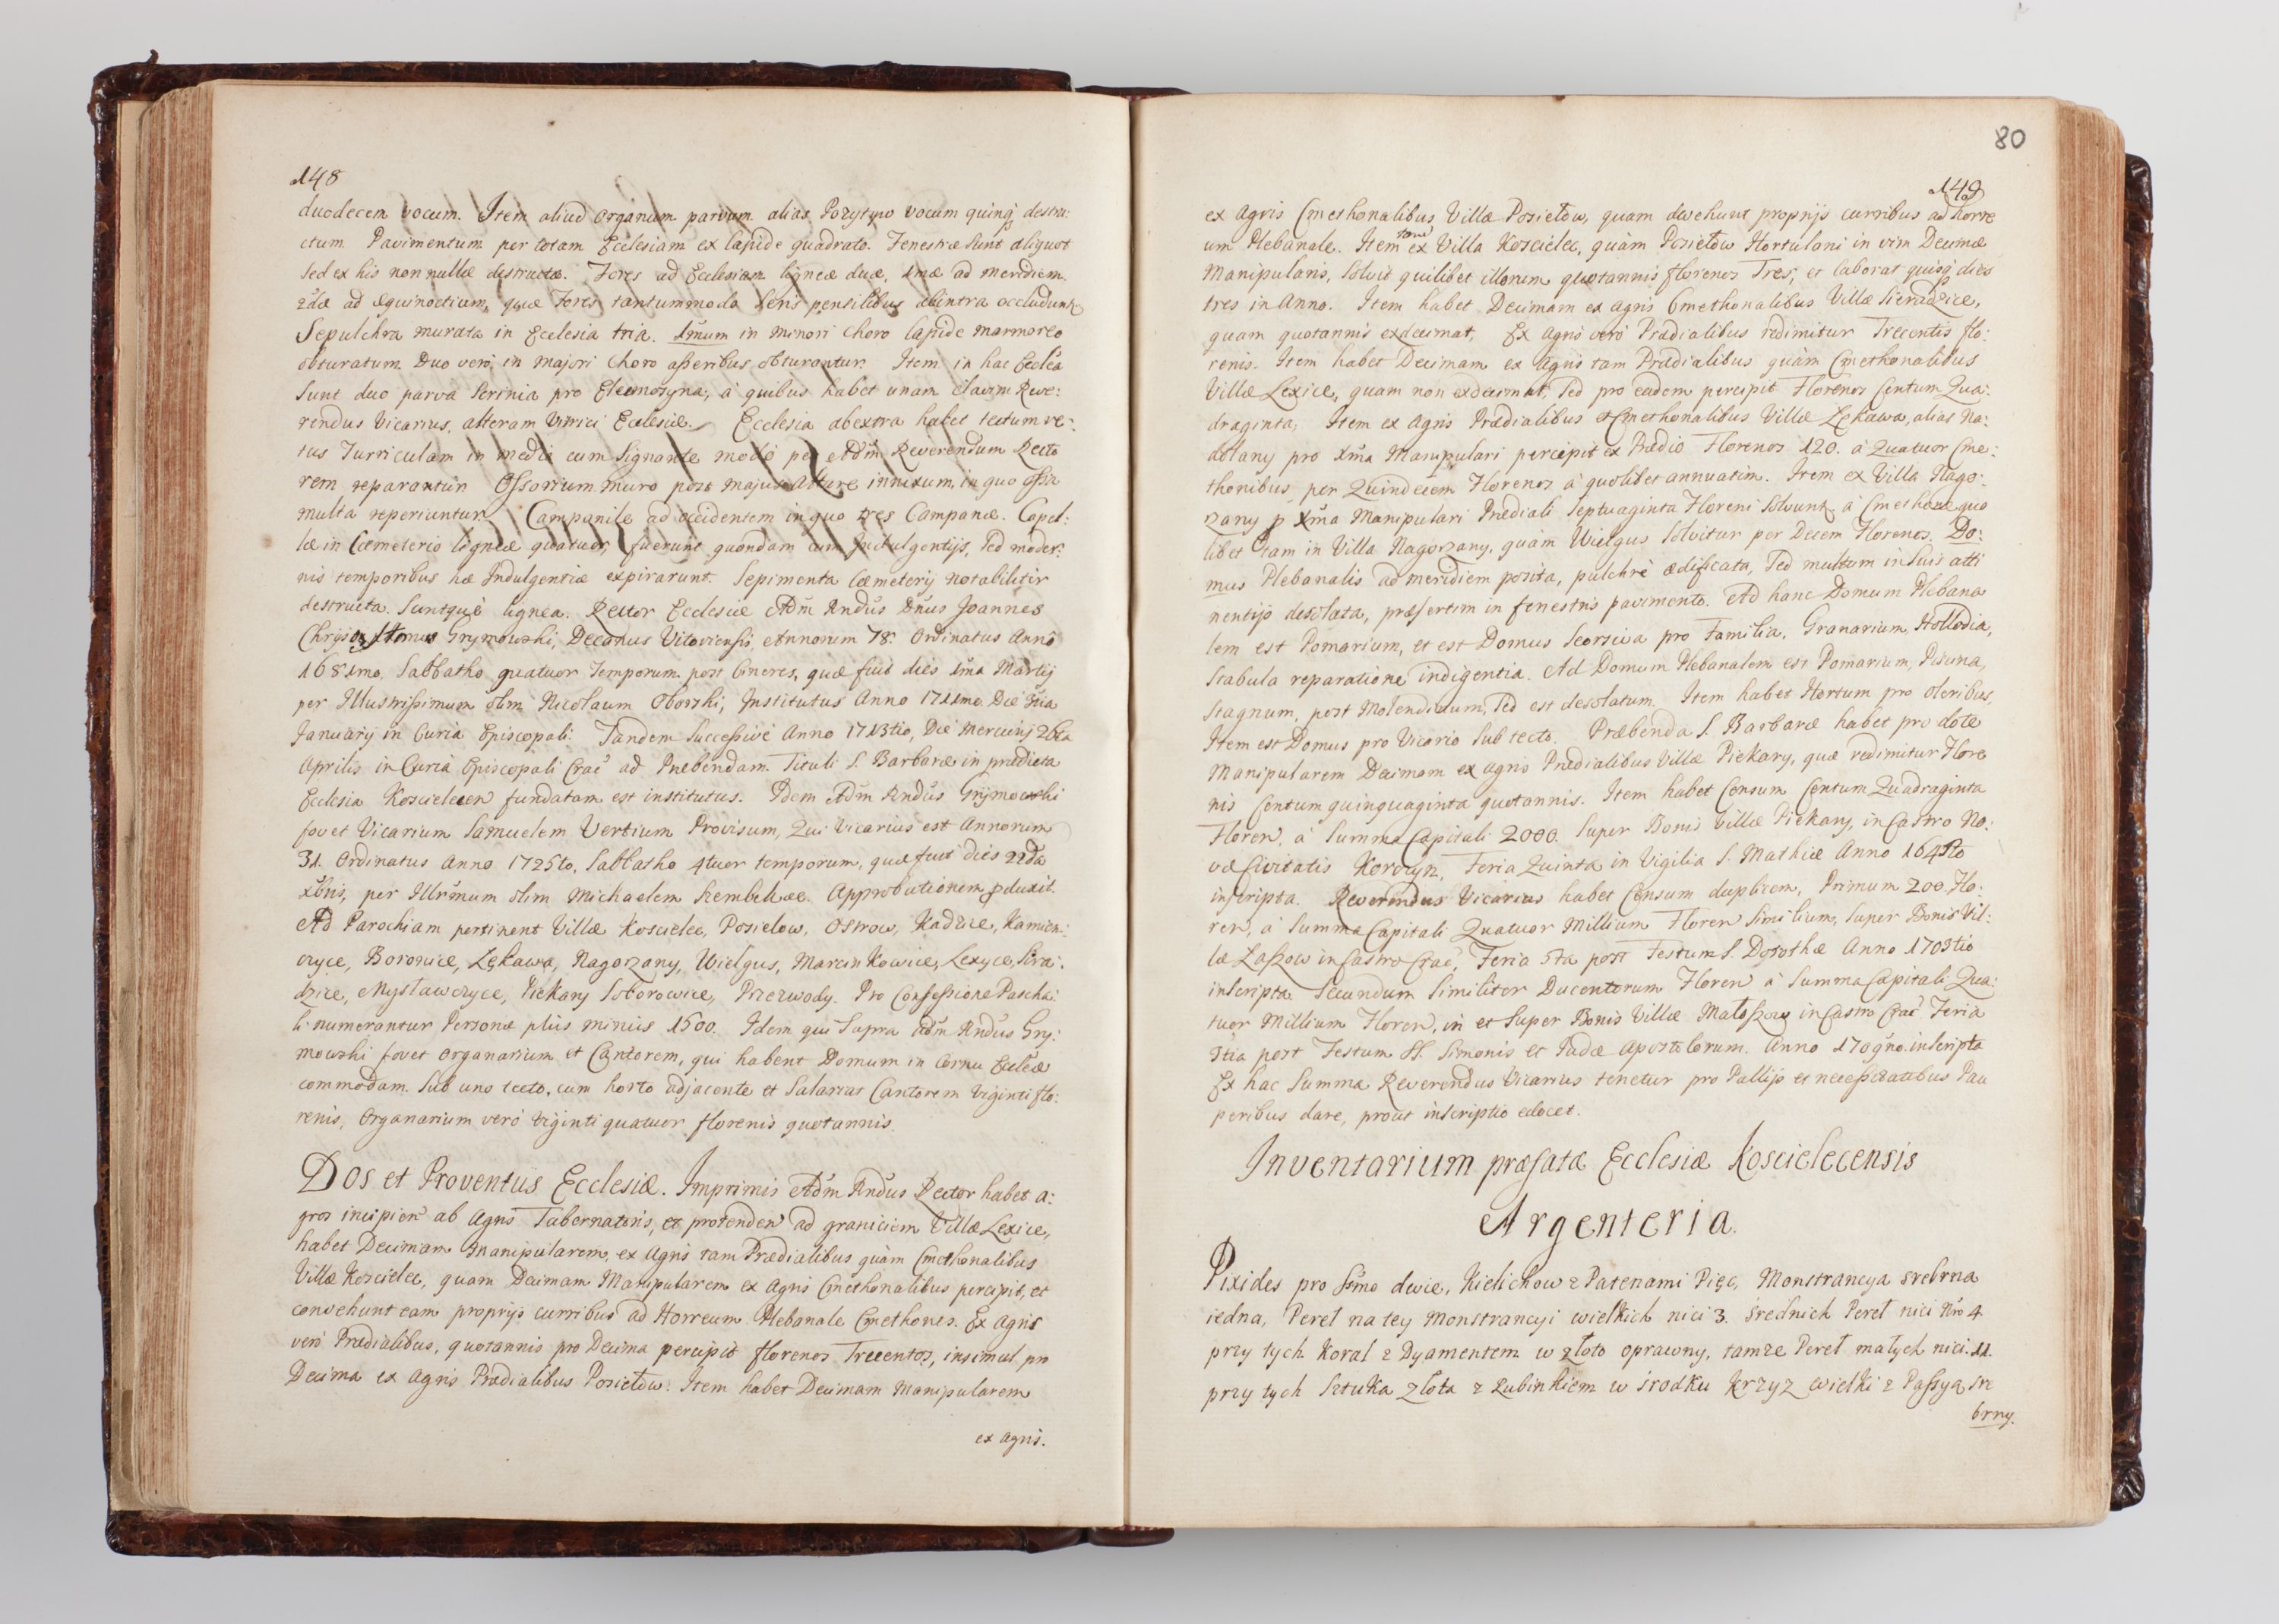 148
duodecem vocum. Item aliud organum parvum alias Pozytyw vocum quinq₃ destru:
ctum Pavimentum per totam Ecclesiam ex lapide quadrato. Fenestræ sunt aliquot
sed ex his non nullæ destructæ. Fores ad Ecclesiam ligneæ duæ, 1mæ ad meridiem
2dæ ad Æquinoctium, quæ Fores tantummodo seris pensilibus abintra occludunt
Sepulchra murata in Ecclesia tria. 1mum in minori Choro lapide marmoreo
obturatum. Duo verò in majori Choro asseribus obturantur. Item in hac Ecclea
sunt duo parva Scrinia pro Eleemosyna, à quibus habet unam clavim Reve:
rendus Vicarius, alteram Vitrici Ecclesiæ. Ecclesia abextra habet tectum ve:
tus Turriculam in medio cum Signante modo per Adm Reverendum Recto
rem reparantur. Ossorium muro post majus Altare innixum, in quo ossa
multa reperiuntur. Campanile ad occidentem in quo tres Campanæ. Capel:
læ in Cæmeterio ligneæ quatuor, fuerunt quondam cum Indulgentijs, sed moder:
nis temporibus hæ Indulgentiæ expirarunt. Sepimenta Cæmeterij notabiliter
destructa. suntquè lignea. Rector Ecclesiæ Adm Rndus Dnus Joannes
Chrysostomus Grymowski, Decanus Vitoviensis Annorum 78. Ordinatus Anno
1681mo, Sabbatho quatuor Temporum post Cineres, quæ fuit dies 1ma Martij
per Illustrissimum olim Nicolaum Oborski, Institutus Anno 1711mo Die
Januarij in Curia Episcopali. Tandem successivè Anno 1713tio, Die Mercurij 26ta
Aprilis in Curia Episcopali Crac ad Præbendam Tituli S. Barbaræ in prædicta
Ecclesia Koscielecen fundatam est institutus. Idem Adm Rndus Grymowski
fovet Vicarium Samuelem Vertium Provisum, Qui Vicarius est Annorum
31. Ordinatus Anno 1725to, Sabbatho 4tuor temporum, quæ fuit dies 22da
Xbris, per Illrmum olim Michaelem Szembek &c. Approbationem pduxit.
Ad Parochiam pertinent Villæ Koscielec, Posielow, Ostrow, Kadzice, Kamien:
czyce, Boronice, Łękawa, Nagorzany, Wielgus, Marcinkowice, Lexyce, Sira:
dzice, Mysławczyce, Piekary Soborowice, Przezwody. Pro Confessione Pascha:
li numerantur Personæ plùs minùs 1500. Idem qui supra Adm Rndus Gry:
mowski fovet Organarium et Cantorem, qui habent Domum in Cornu Eccleæ
commodam sub uno tecto, cum horto adjacente et salariat Cantorem Viginti flo:
renis, Organarium verò viginti quatuor florenis quotannis.
Dos et Proventus Ecclesiæ. Imprimis Adm Rndus Rector habet a:
gros incipien ab Agris Tabernatoris, et protenden ad graniciem Villæ Lexice,
habet Decimam Manipularem, ex Agris tam Prædialibus quàm Cmethonalibus
Villæ Koscielec, quam Decimam Manipularem ex Agris Cmethonalibus percipit, et
convehunt eam proprijs curribus ad Horreum Plebanale Cmethones. Ex Agris
verò Prædialibus, quotannis pro Decima percipit florenos Trecentos, insimul pro
Decima ex Agris Prædialibus Posielow. Item habet Decimam Manipularem
ex Agris.
80
149
ex Agris Cmethonalibus Villæ Posiełow, quam devehunt proprijs curribus ad horre
um Plebanale. Item tam ex Villa Koscielec, quàm Posiełow Hortulani in vim Decimæ
Manipularis, solvit quilibet illorum quotannis florenos Tres, et laborat quisq₃ dies
tres in Anno. Item habet Decimam ex Agris Cmethonalibus Villæ Sieradzice,
quam quotannis exdecimat, Ex Agris verò Prædialibus redimitur Trecentis flo:
renis. Item habet Decimam ex Agris tam Prædialibus quàm Cmethonalibus
Villæ Lexice, quam non exdecimat, sed pro eadem percipit Florenos Centum Qua:
draginta, Item ex Agris Prædialibus et Cmethonalibus Villæ Łękawa, alias Na:
dolany pro Xma Manipulari percipit ex Prædio Florenos 120. à Quatuor Cme:
thonibus per Quindecem Florenos à quolibet annuatim. Item ex Villa Nago:
rzany p Xma Manipulari Prædiali Septuaginta Floreni solvunt à Cmethone quo
libet tam in Villa Nagorzany, quam Wielgus solvitur per Decem Florenos. Do:
mus Plebanalis ad meridiem posita, pulchrè ædificata, sed multum in suis atti
nentijs desolata, præsertim in fenestris pavimento. Ad hanc Domum Plebana
lem est Pomarium, et est Domus Seorsiva pro Familia, Granarium, Hollodia,
Stabula reparatione indigentia. Ad Domum Plebanalem est Pomarium, Piscina,
Stagnum, post Molendinum, sed est desolatum. Item habet Hortum pro oleribus,
Item est Domus pro Vicario sub tecto. Præbenda S. Barbaræ habet pro dote
Manipularem Decimam ex Agris Prædialibus Villæ Piekary, quæ redimitur Flore
nis Centum quinquaginta quotannis. Item habet Censum Centum Quadraginta
Floren, à Summa Capitali 2000. super Bonis Villæ Piekary, in Castro No:
væ Civitatis Korczyn, Feria Quinta in Vigilia S. Mathiæ Anno
inscripta. Reverendus Vicarius habet Censum duplicem, Primum 200. Flo:
ren, à Summa Capitali Quatuor Millium Floren similium, super Bonis Vil:
læ Łaszow in Castro Crac, Feria 5ta post Festum S. Dorothæ Anno 1703tio
inscripta. Secundum similiter Ducentorum Floren à Summa Capitali Qua:
tuor Millium Floren, in et super Bonis Villæ Małoszow in Castro Crac Feria
3tia post Festum SS. Simonis et Judæ Apostolorum. Anno 1709no inscripta
Ex hac Summa Reverendus Vicarius tenetur pro Pallijs et necessitatibus Pau
peribus dare, prout inscriptio edocet.
Inventarium præfatæ Ecclesiæ Koscielecensis
Argenteria.
Pixides pro Ssmo dwie, Kielichow z Patenami Pięć, Monstrancya srebrna
iedna, Pereł na tey Monstrancyi wielkich nici 3. srednich Pereł nici Nro 4
przy tych Koral z Dyamentem w złoto oprawny, tamze Pereł małych nici. 11.
przy tych Sztuka złota z Rubinkiem w srodku Krzyz wielki z Passyą sre
brny.